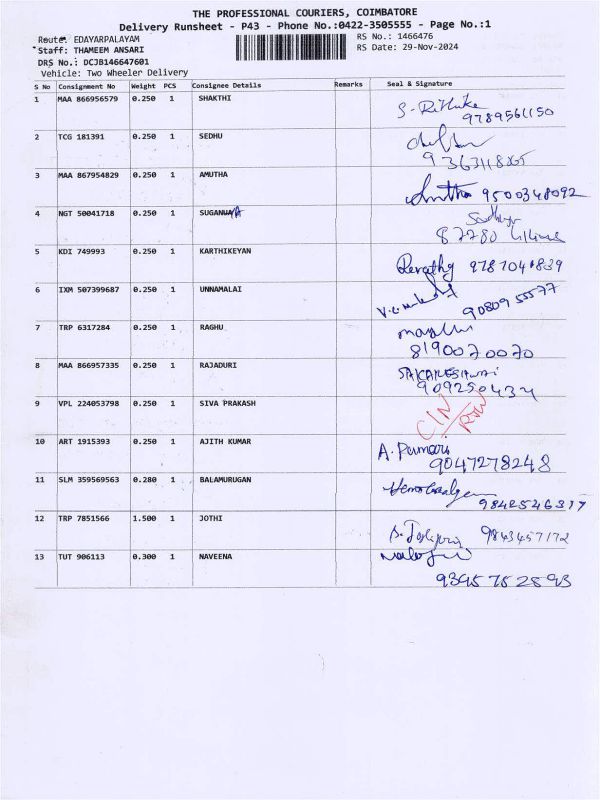 THE PROFESSIONAL COURIERS, COIMBATORE
Delivery Runsheet - P43 - Phone No.:0422-3505555 - Page No.:1
Route: EDAYARPALAYAM RS No.: 1466476
Staff: THAMEEM ANSARI RS Date: 29-Nov-2024
DRS No.: DCJB146647601
Vehicle: Two Wheeler Delivery
S No Consignment No Weight PCS Consignee Details Remarks Seal & Signature
1 MAA 866956579 0.250 1 SHAKTHI S. Rithika
9789561150
2 TCG 181391 0.250 1 SEDHU
3 MAA 867954829 0.250 1 AMUTHA Amutha 9500348092
4 NGT 50041718 0.250 1 SUGANYA
87780
5 KDI 749993 0.250 1 KARTHIKEYAN Revathy
6 IXM 507399687 0.250 1 UNNAMALAI 9080955577
7 TRP 6317284 0.250 1 RAGHU
8190070070
8 MAA 866957335 0.250 1 RAJADURI
9092504 34
9 VPL 224053798 0.250 1 SIVA PRAKASH CIN
10 ART 1915393 0.250 1 AJITH KUMAR A.
9047278248
11 SLM 359569563 0.280 1 BALAMURUGAN
9842546317
12 TRP 7851566 1.500 1 JOTHI 9843457172
13 TUT 906113 0.300 1 NAVEENA
9395752893